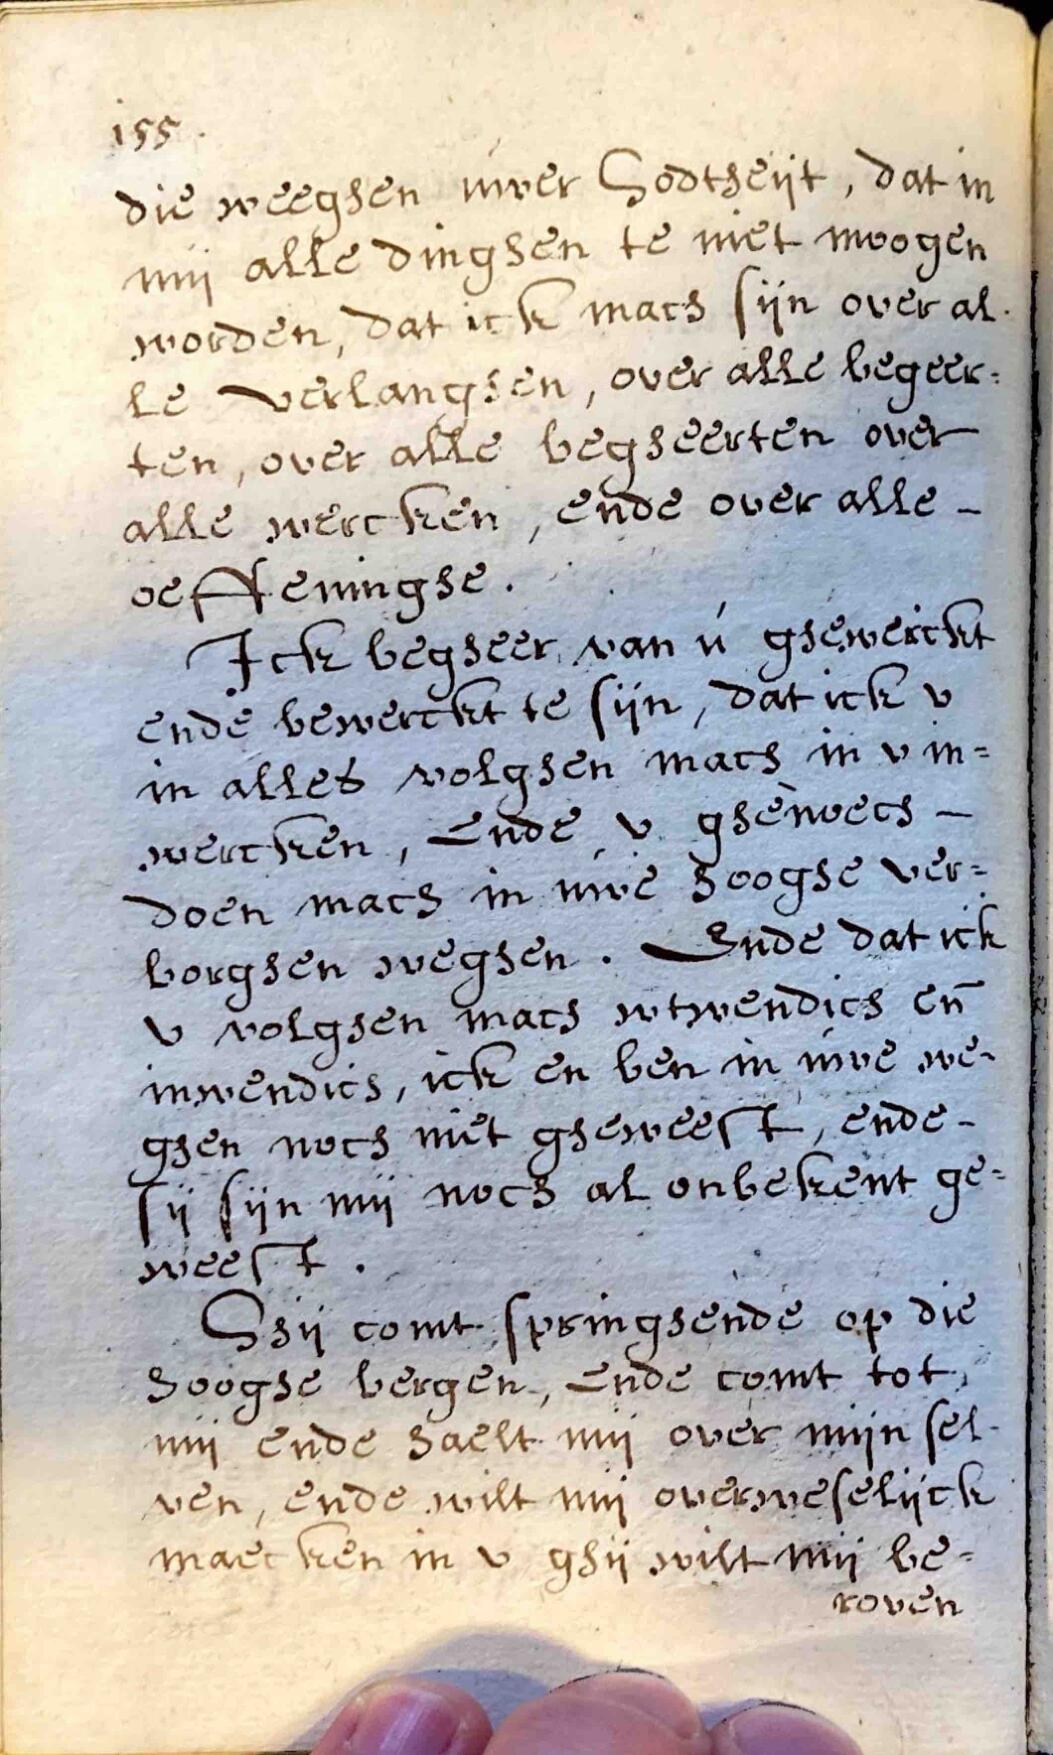 155.
die weeghen uwer Godtheijt, dat in
mij alle dinghen te niet moogen
worden, dat ick mach sijn over al-
le verlanghen, over alle begeer=
ten, over alle begheerten over
alle wercken, ende over alle -
oeffeninghe.
Ick begheer van ú ghewerckt
ende bewerckt te sijn, dat ick v
in alles volghen mach in v in=
wercken, Ende v ghenoech -
doen mach in uwe hooghe ver=
borghen weghen. Ende dat ick
v volghen mach wtwendich en̄
inwendich, ick en ben in uwe we-
ghen noch niet gheweest, ende -
sij sijn mij noch al onbekent ge=
weest.
Ghij comt springhende op die
hooghe bergen, Ende comt tot
mij ende haelt mij over mijn sel-
ven, ende wilt mij overweselijck
maecken in v ghij wilt mij be=
roven